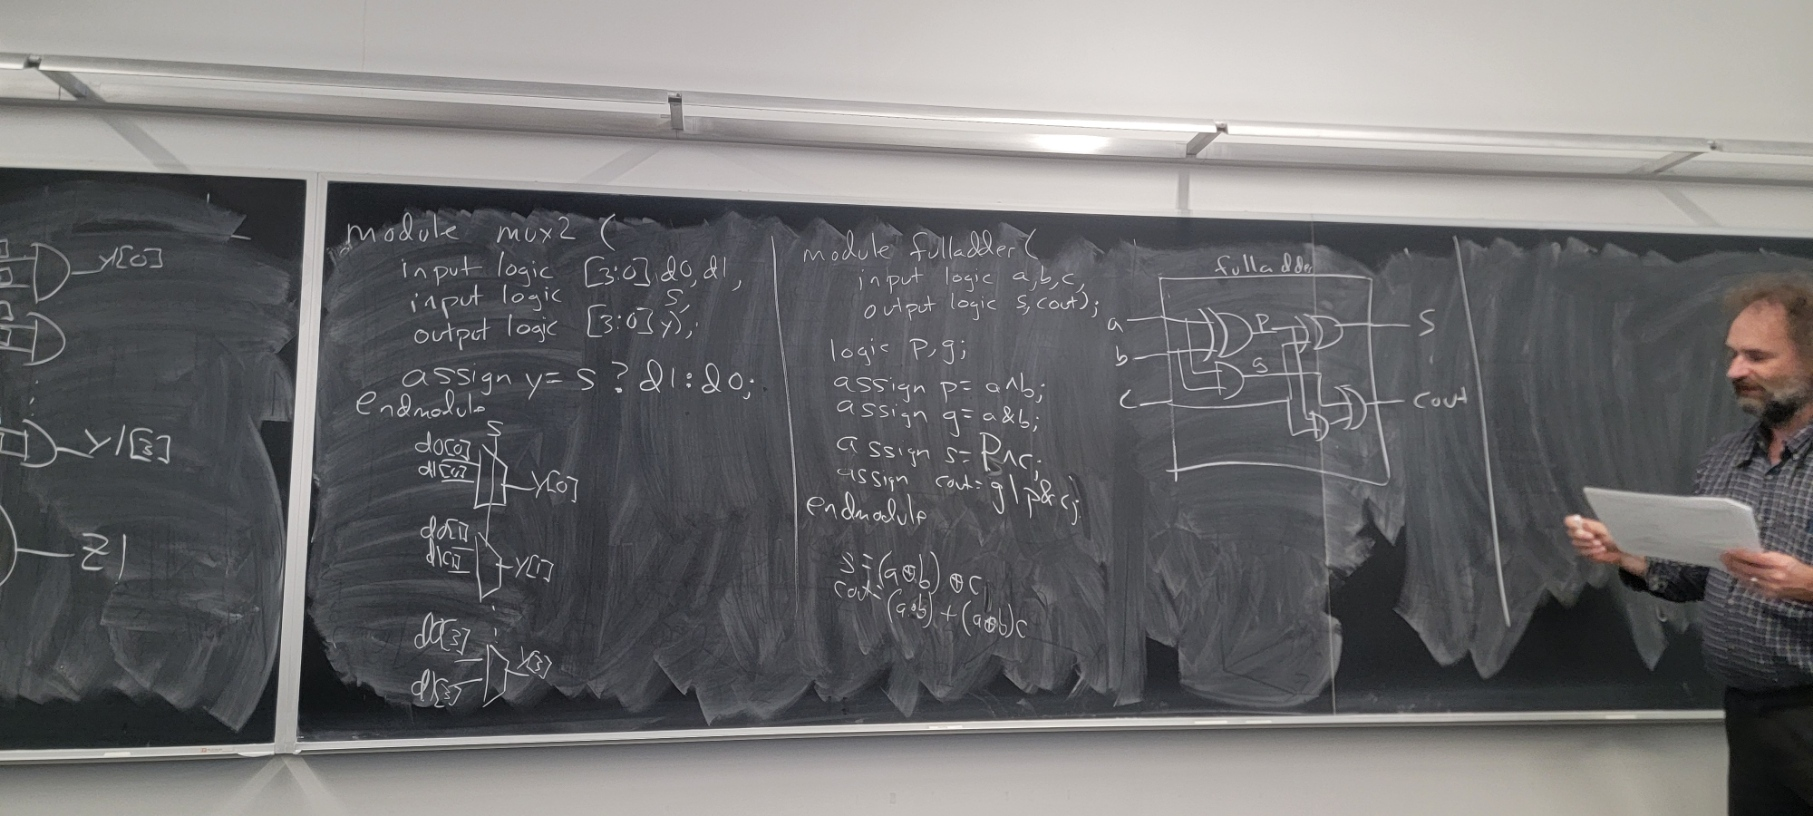 Y[0]
Y/[3]
Z1
module mux2 (
input logic [3:0] d0, d1,
input logic s,
output logic [3:0] y);
assign y = s ? d1 : d0;
endmodule
S
d0[0]
d1[0]
Y[0]
d0[1]
d1[1]
Y[1]
d0[3]
d1[3]
Y[3]
module fulladder (
input logic a,b,c,
output logic s,cout);
logic p,g;
assign p = a^b;
assign g = a&b;
assign s = p^c;
assign cout = g|p&c;
endmodule
s = (a⊕b)⊕c
cout = (a·b) + (a⊕b)c
fulladder
a
b
c
P
g
S
cout